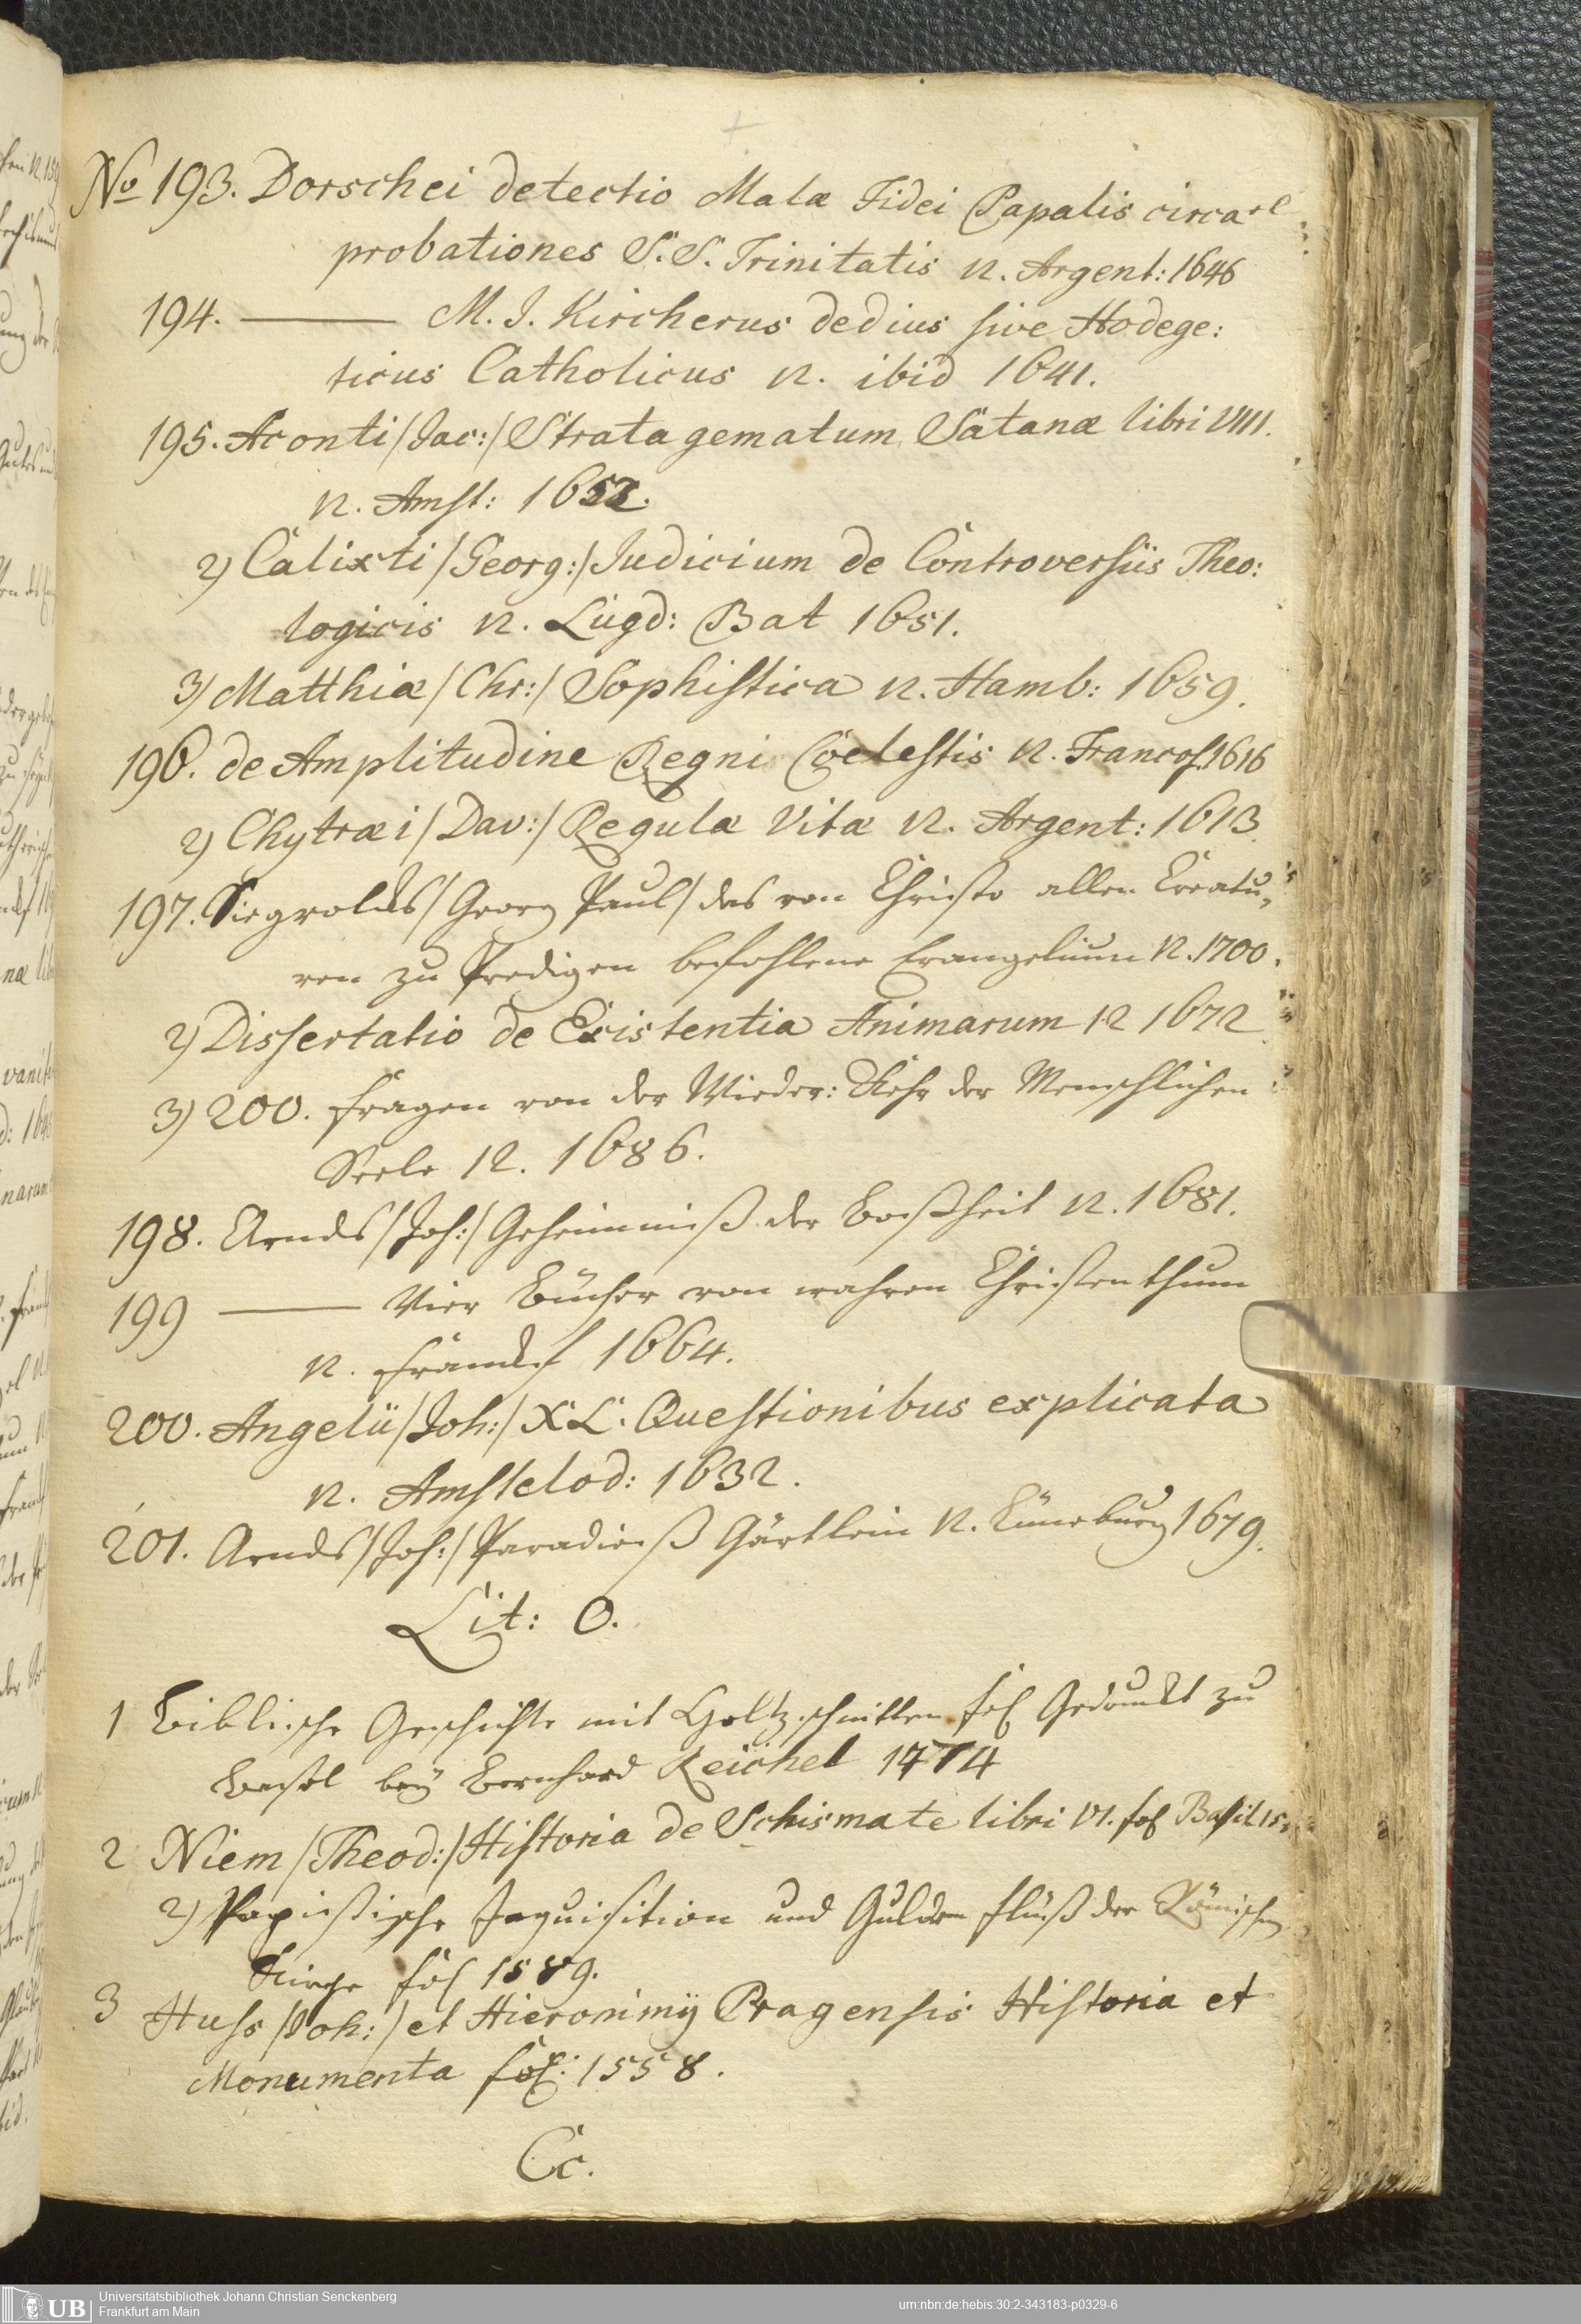 No 193. Dorschei detectio Malæ Fidei Papalis circa
probationes S.S. Trinitatis 12. Argent: 1646
194. ——— M. J. Kircherus dedius sive Hodege:
ticus Catholicus 12. ibid 1641.
195. Aconti /Jac:/ Stratagematum Satanæ libri VIII.
12. Amst: 1652.
2) Calixti /Georg:/ Judicium de Controversiis Theo:
logicis 12. Lugd: Bat 1651.
3) Matthiæ /Chr:/ Sophistica 12. Hamb: 1659.
196. de Amplitudine Regni Cœlestis 12. Francof. 1616
2) Chytræi /Dav:/ Regulæ Vitæ 12. Argent: 1613.
197. Siegvolcks /Georg Paul/ das von Christo allen Creatu„
ren zu Predigen befohlene Evangelium 12. 1700.
2) Dissertatio de Existentia Animarum 12 1672
3) 200. Fragen von der Wieder: Kehr der Menschlichen
Seele 12. 1686.
198. Arnds /Joh:/ Geheimniß der Boßheit 12. 1681.
199 ——— Vier Bücher von wahren Christenthum
12. Franckf 1664.
200. Angelii /Joh:/ XL. Questionibus explicata
12. Amstelod: 1632.
201. Arnds /Joh:/ Paradieß Gärtlein 12. Lüneburg 1679.
Lit: O.
1 Biblische Geschichte mit Holtzschnitten fol Gedruckt zu
Basel bey Bernhard Reichel 1474
2 Niem /Theod:/ Historia de Schismate libri VI. fol Basil 15
2) Papistische Inquisition und Gulden Flüß der Römischen
Kirche fol 1589.
3 Huss /Joh:/ et Hieronimij Pragensis Historia et
Monumenta fol: 1558.
Cc.
Universitätsbibliothek Johann Christian Senckenberg
Frankfurt am Main
UB
urn:nbn:de:hebis:30:2-343183-p0329-6